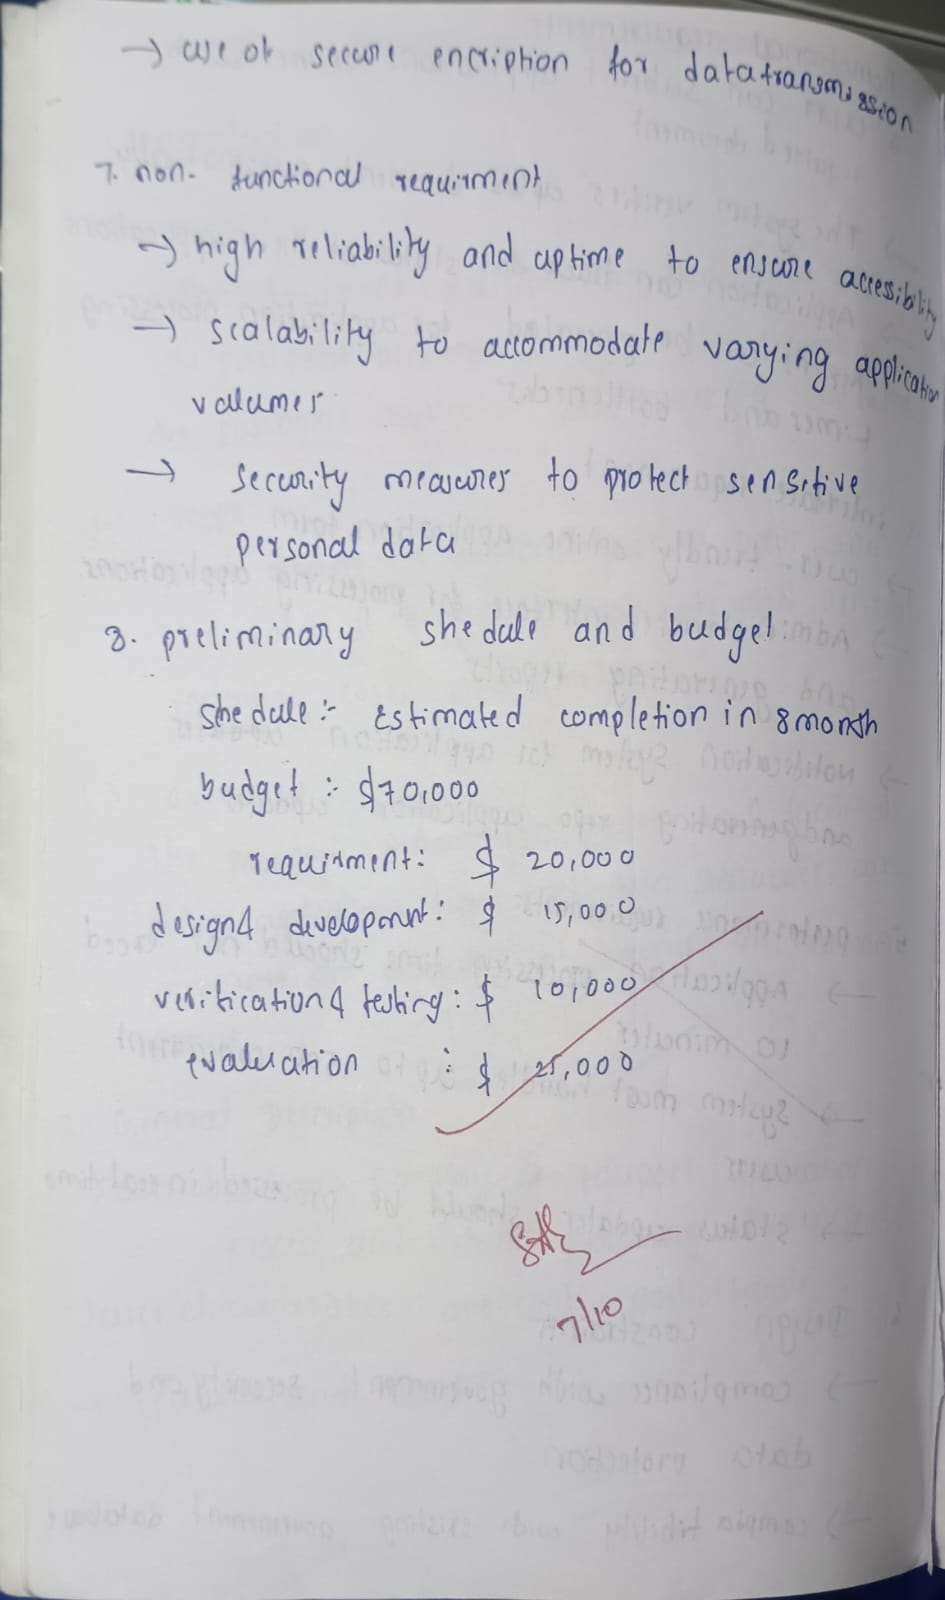 → use of secure encription for datatransmission
7. non- functional requirment
→ high reliability and uptime to ensure accessibility
→ scalability to accommodate varying application
volumes
→ security measures to protect sensitive
personal data
8. preliminary shedule and budget
shedule :- Estimated completion in 8month
budget :- $70,000
requirment: $ 20,000
design & development: $ 15,000
verification & testing: $ 10,000
evaluation : $ 25,000
7/10